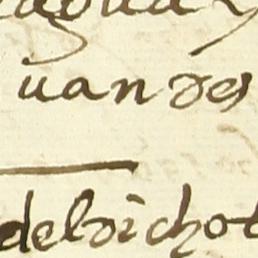 uan des
del dicho t